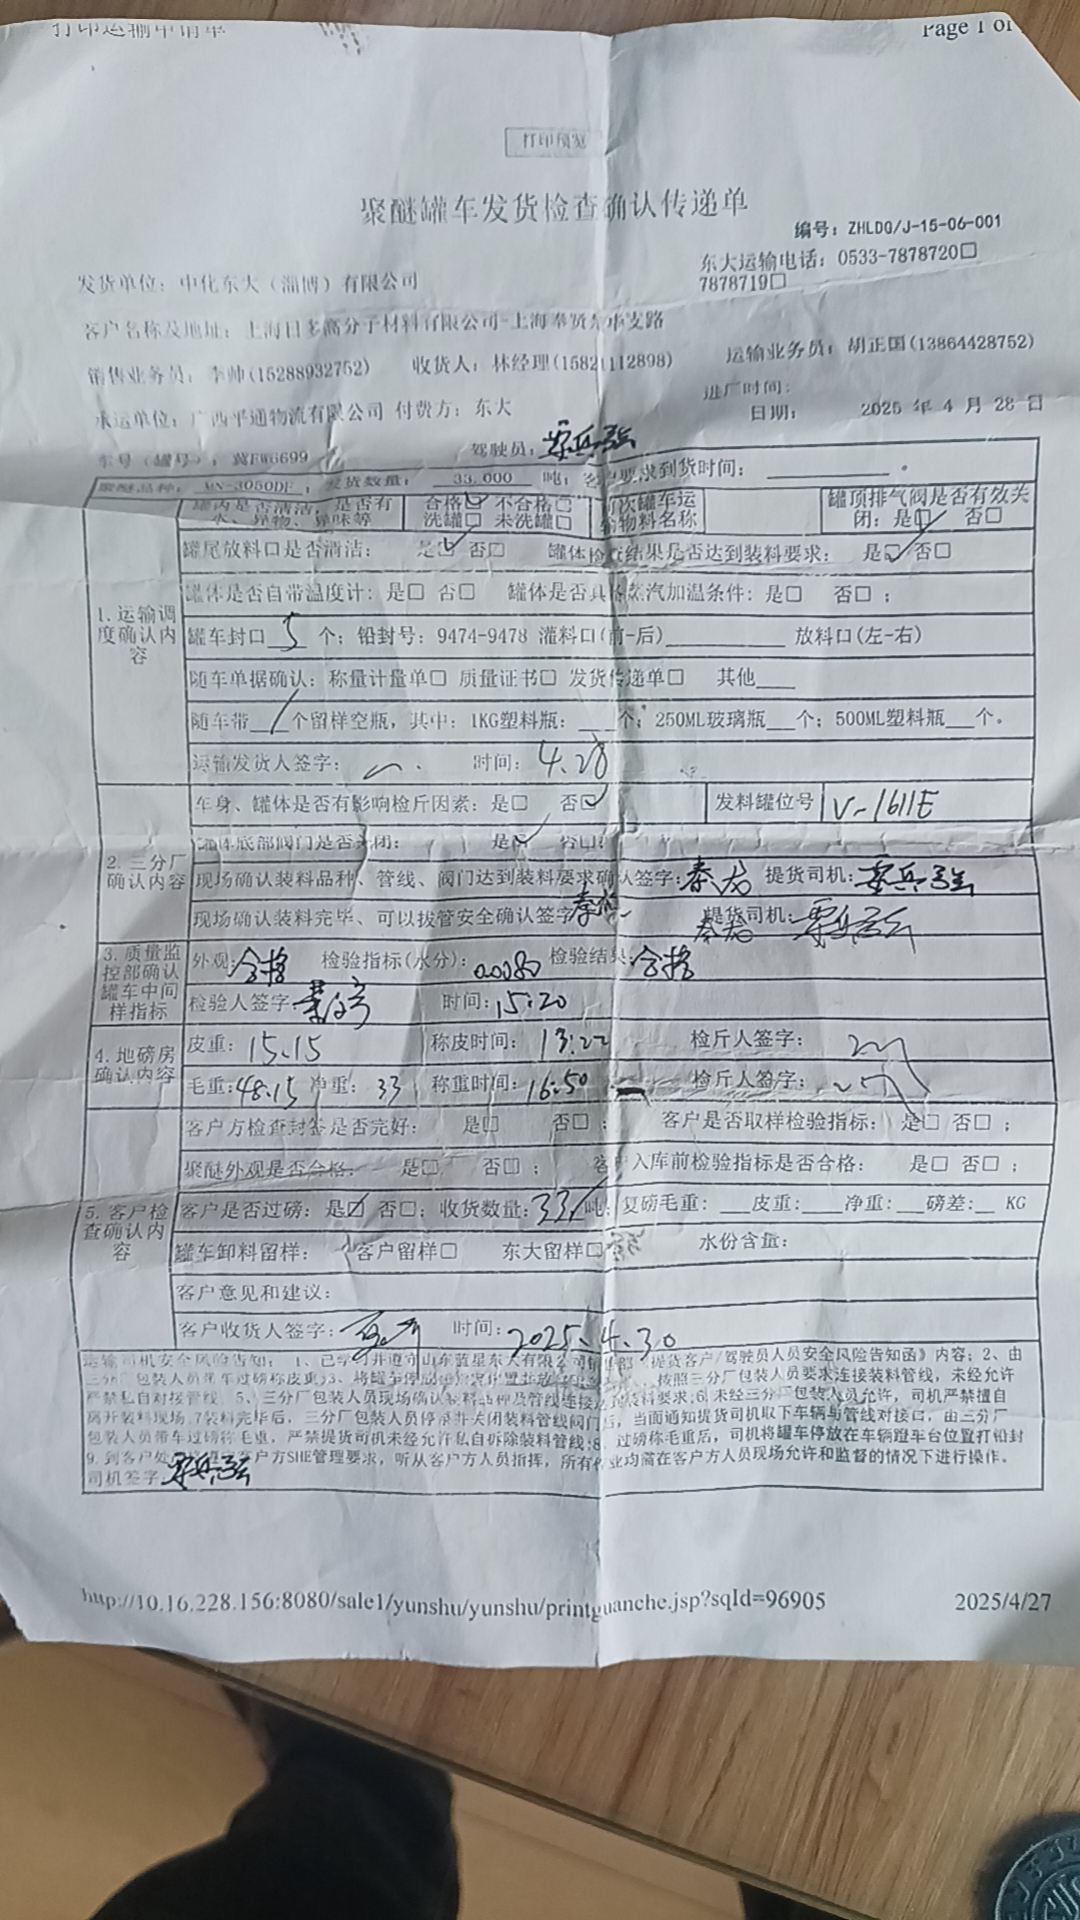 打印运输申请单 Page 1 of
打印预览
聚醚罐车发货检查确认传递单
编号: ZHLDQ/J-15-06-001
发货单位: 中化东大（淄博）有限公司 东大运输电话: 0533-7878720□
7878719□
客户名称及地址: 上海日多高分子材料有限公司-上海奉贤 支路
销售业务员: 李帅(15288932752) 收货人: 林经理(15821112898) 运输业务员: 胡正国(13864428752)
进厂时间:
承运单位: 广西平通物流有限公司 付费方: 东大 日期: 2025 年 4 月 28 日
车号（罐号）: 冀FW6699 驾驶员:
聚醚品种: MN-3050DF ; 发货数量: 33.000 吨; 客户要求到货时间:
1.运输调度确认内容
罐内是否清洁, 是否有水、异物、异味等 合格☑ 不合格□ 洗罐□ 未洗罐□ 前次罐车运输物料名称 罐顶排气阀是否有效关闭: 是☑ 否□
罐尾放料口是否清洁: 是☑ 否□ 罐体检查结果是否达到装料要求: 是☑ 否□
罐体是否自带温度计: 是□ 否□ 罐体是否具备蒸汽加温条件: 是□ 否□ ;
罐车封口 5 个; 铅封号: 9474-9478 灌料口(前-后) 放料口(左-右)
随车单据确认: 称量计量单□ 质量证书□ 发货传递单□ 其他
随车带 / 个留样空瓶, 其中: 1KG塑料瓶: 个; 250ML玻璃瓶 个; 500ML塑料瓶 个。
运输发货人签字: 时间: 4.28
2.三分厂确认内容
车身、罐体是否有影响检斤因素: 是□ 否☑ 发料罐位号 V-1611E
罐体底部阀门是否关闭: 是☑ 否□
现场确认装料品种、管线、阀门达到装料要求确认签字: 秦龙 提货司机:
现场确认装料完毕、可以拔管安全确认签字: 秦龙 提货司机:
3.质量监控部确认罐车中间样指标
外观: 合格 检验指标(水分): 0.0080 检验结果: 合格
检验人签字: 时间: 15:20
4.地磅房确认内容
皮重: 15.15 称皮时间: 13:22 检斤人签字:
毛重: 48.15 净重: 33 称重时间: 16:50 检斤人签字:
5.客户检查确认内容
客户方检查封签是否完好: 是□ 否□ ; 客户是否取样检验指标: 是□ 否□ ;
聚醚外观是否合格: 是□ 否□ ; 客户入库前检验指标是否合格: 是□ 否□ ;
客户是否过磅: 是☑ 否□; 收货数量: 33 吨; 复磅毛重: 皮重: 净重: 磅差: KG
罐车卸料留样: 客户留样□ 东大留样□ 水份含量:
客户意见和建议:
客户收货人签字: 时间: 2025.4.30
运输司机安全风险告知: 1、已学习并遵守山东蓝星东大有限公司销售部《提货客户/驾驶员人员安全风险告知函》内容; 2、由
三分厂包装人员 车过磅称皮重;3、将罐车停放 按照三分厂包装人员要求连接装料管线, 未经允许
严禁私自对接管线; 5、三分厂包装人员现场确认装料品种及管线连接达到装料要求;6 未经三分厂包装人员允许, 司机严禁擅自
离开装料现场, 7装料完毕后, 三分厂包装人员停泵并关闭装料管线阀门后, 当面通知提货司机取下车辆与管线对接口, 由三分厂
包装人员带车过磅称毛重, 严禁提货司机未经允许私自拆除装料管线;8、过磅称毛重后, 司机将罐车停放在车辆蹬车台位置打铅封
9.到客户处 客户方SHE管理要求, 听从客户方人员指挥, 所有作业均需在客户方人员现场允许和监督的情况下进行操作。
司机签字:
http://10.16.228.156:8080/sale1/yunshu/yunshu/printguanche.jsp?sqId=96905 2025/4/27